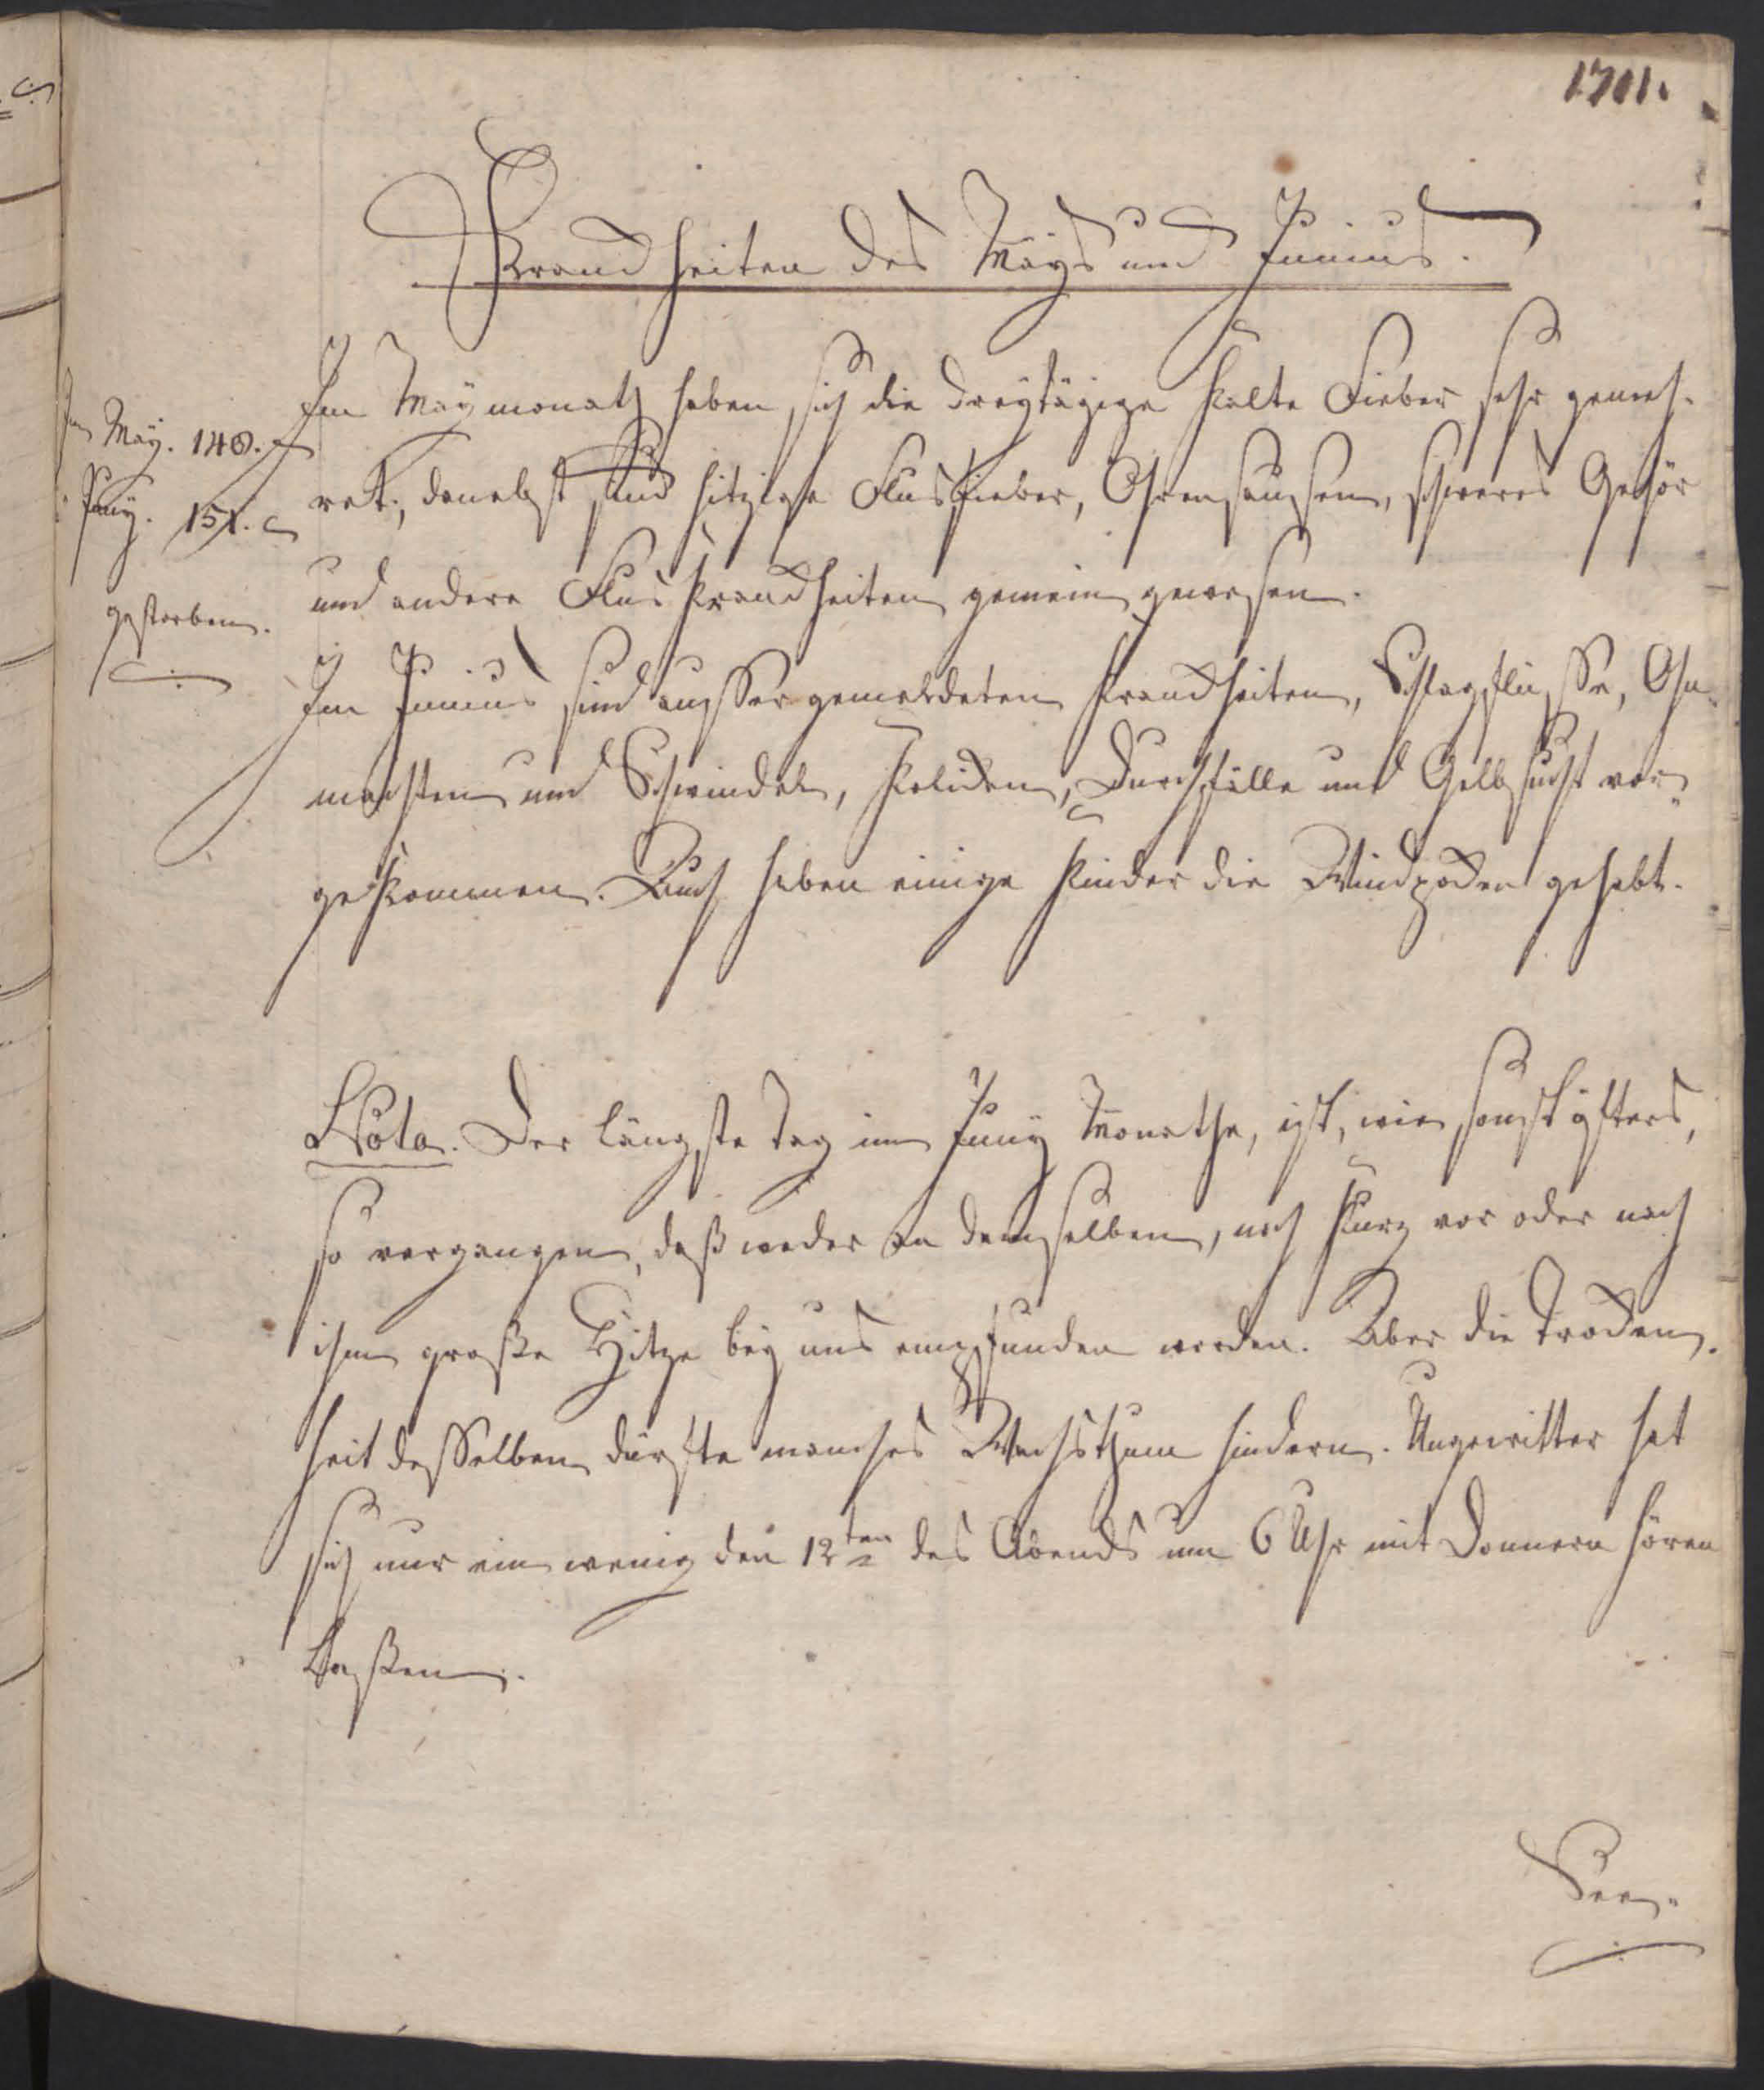 1711.
Kranckheiten des Mays und Junius.
Im Maymonath haben sich die dreytägige kalte Fieber sehr gemeh-
ret, danebst sind hitzige Flusfieber, Ohrensausen, schweres Gehör
und andere Flus kranckheiten gemein gewesen.
Im Junius sind ausser gemeldeten kranckheiten, Schlagflüsse, Ohn-
machten und Schwindel, koliken, Durchfälle und Gelbsucht vor-
gekommen. Auch haben einige kinder die Windpocken gehabt.
im May. 148.
Juny. 151.
gestorben.
Nota. Der längste Tag im Juny Monathe, ist, wie sonst öfters,
so vergangen, daß weder an demselben, noch kurz vor oder nach
ihm große Hitze bey uns empfunden worden. Aber die Trocken-
heit desselben dürfte manches Wachsthum hindern. Ungewitter hat
sich nur ein wenig den 12ten des Abends um 6 Uhr mit Donnern hören
laßen.